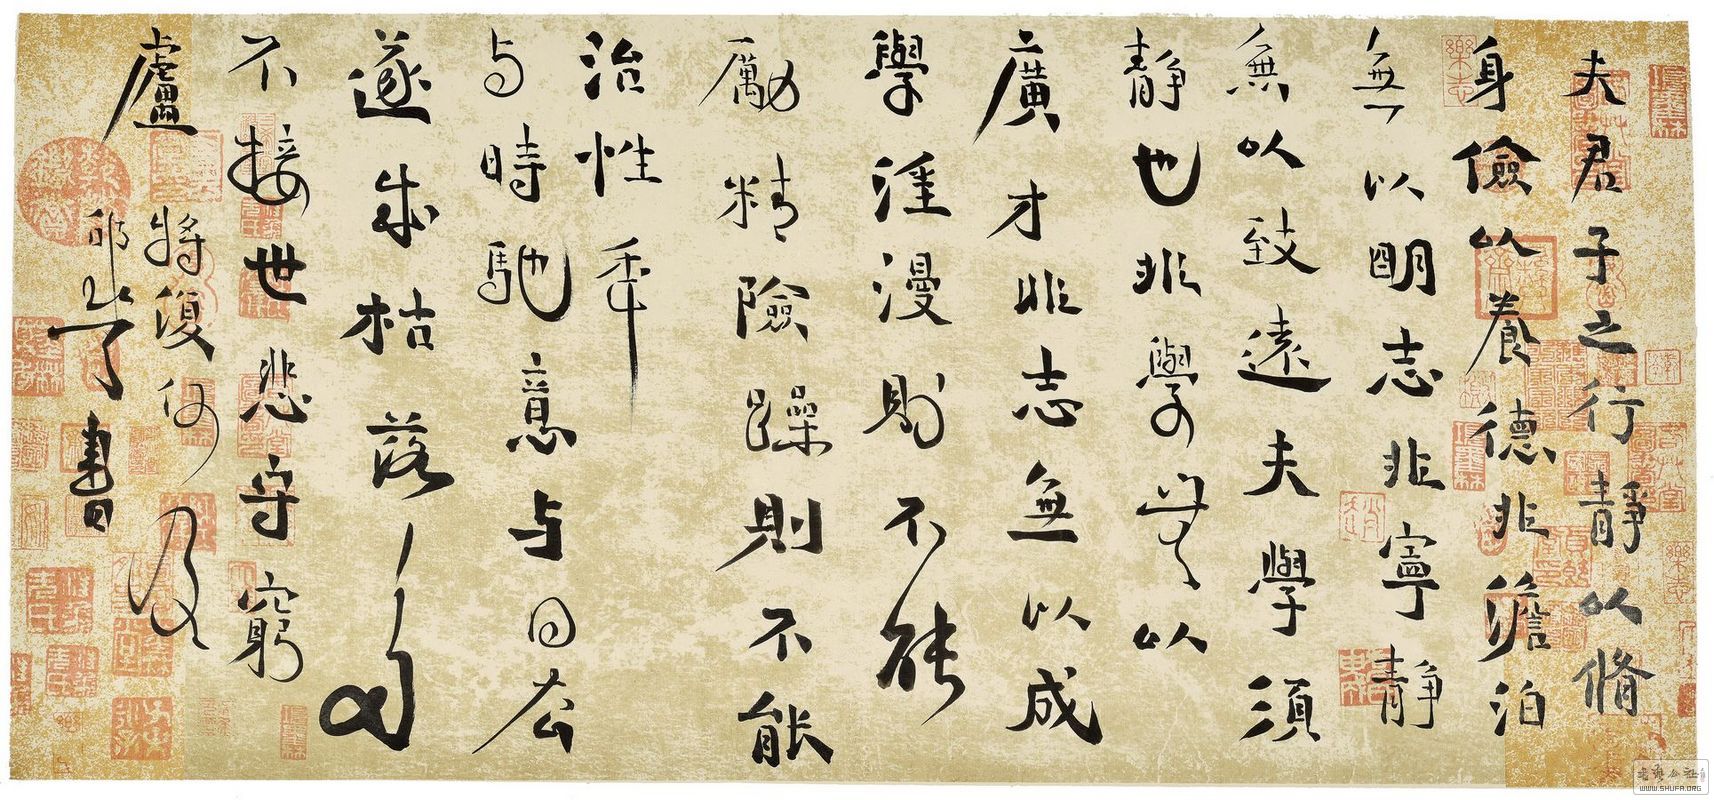 夫君子之行靜以脩
身儉以養德非澹泊
無以明志非寧靜
無以致遠夫學須
靜也非學無以
廣才非志無以成
學淫漫則不能
勵精險躁則不能
治性年
与時馳意与日去
遂成枯落多
不接世悲守窮
廬將復何及
書
WWW.SHUFA.ORG